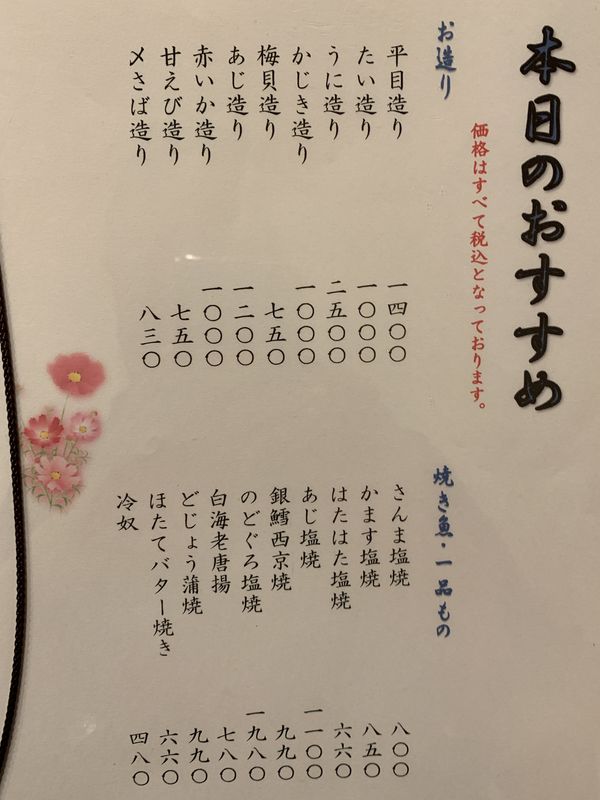 本日のおすすめ
価格はすべて税込となっております。
お造り
平目造り 一四〇〇
たい造り 一〇〇〇
うに造り 二五〇〇
かじき造り 一〇〇〇
梅貝造り 七五〇
あじ造り 一二〇〇
赤いか造り 一〇〇〇
甘えび造り 七五〇
〆さば造り 八三〇
焼き魚・一品もの
さんま塩焼 八〇〇
かます塩焼 八五〇
はたはた塩焼 六六〇
あじ塩焼 一一〇〇
銀鱈西京焼 九九〇
のどぐろ塩焼 一九八〇
白海老唐揚 七八〇
どじょう蒲焼 九九〇
ほたてバター焼き 六六〇
冷奴 四八〇